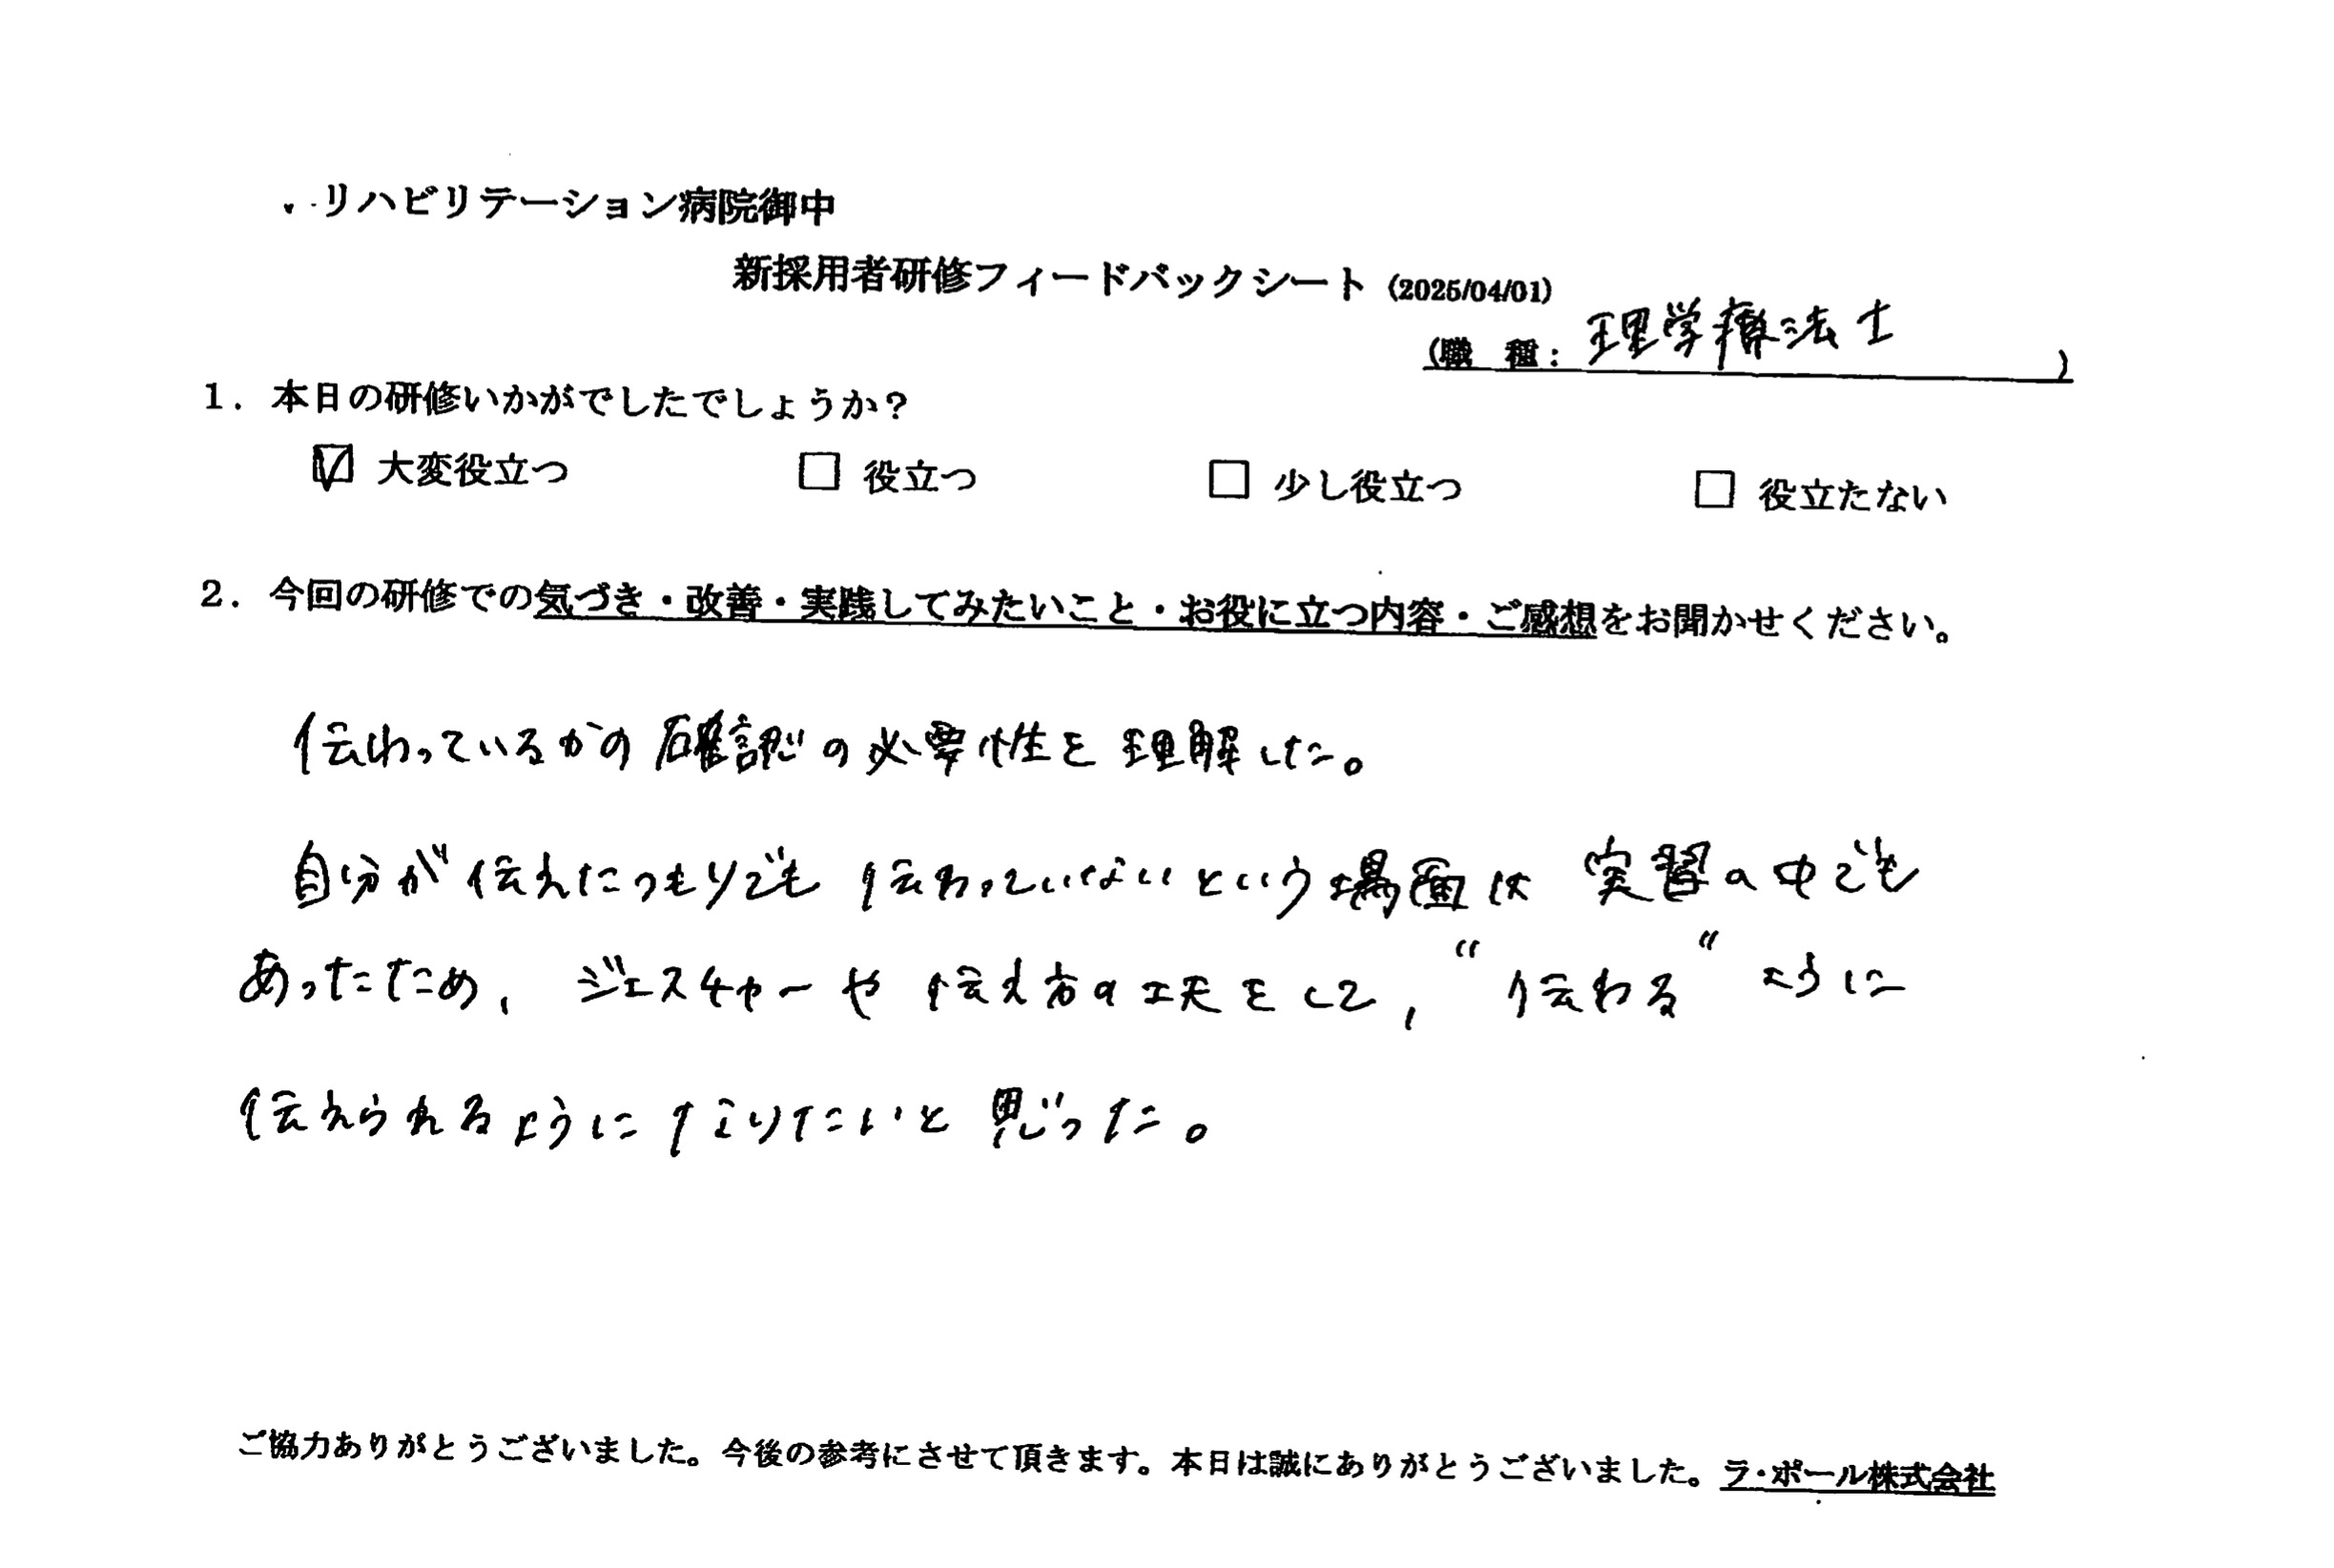 リハビリテーション病院御中
新採用者研修フィードバックシート (2025/04/01)
(職 種: 理学療法士 )
1. 本日の研修いかがでしたでしょうか?
☑ 大変役立つ □ 役立つ □ 少し役立つ □ 役立たない
2. 今回の研修での気づき・改善・実践してみたいこと・お役に立つ内容・ご感想をお聞かせください。
伝わっているかの確認の必要性を理解した。
自分が伝えたつもりでも伝わっていないという場面は実習の中でも
あったため、ジェスチャーや伝え方の工夫をして、“伝わる“ように
伝えられるようになりたいと思った。
ご協力ありがとうございました。今後の参考にさせて頂きます。本日は誠にありがとうございました。ラ・ポール株式会社